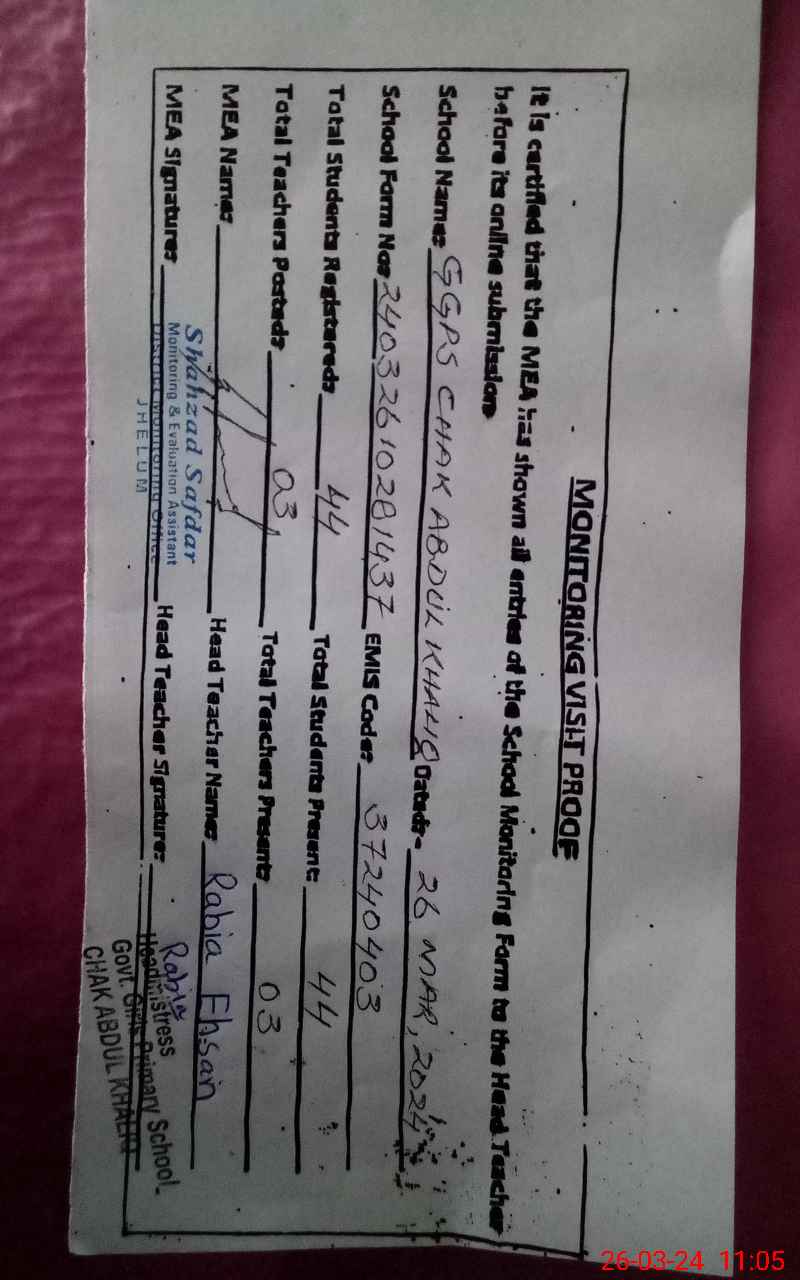 MONITORING VISIT PROOF
It is certified that the MEA has shown all entries of the School Monitoring Form to the Head Teacher
before its online submission
School Name: GGPS CHAK ABDUL KHALIQ Dated:- 26 MAR, 2024
School Form No: 24032610281437 EMIS Code: 37240403
Total Students Registered: 44 Total Students Present: 44
Total Teachers Posted: 03 Total Teachers Present: 03
MEA Name: Head Teacher Name: Rabia Ehsan
MEA Signature: Head Teacher Signature: Rabia
Shahzad Safdar
Monitoring & Evaluation Assistant
District Monitoring Office
JHELUM
Headmistress
Govt. Girls Primary School
CHAK ABDUL KHALIQ
26-03-24 11:05